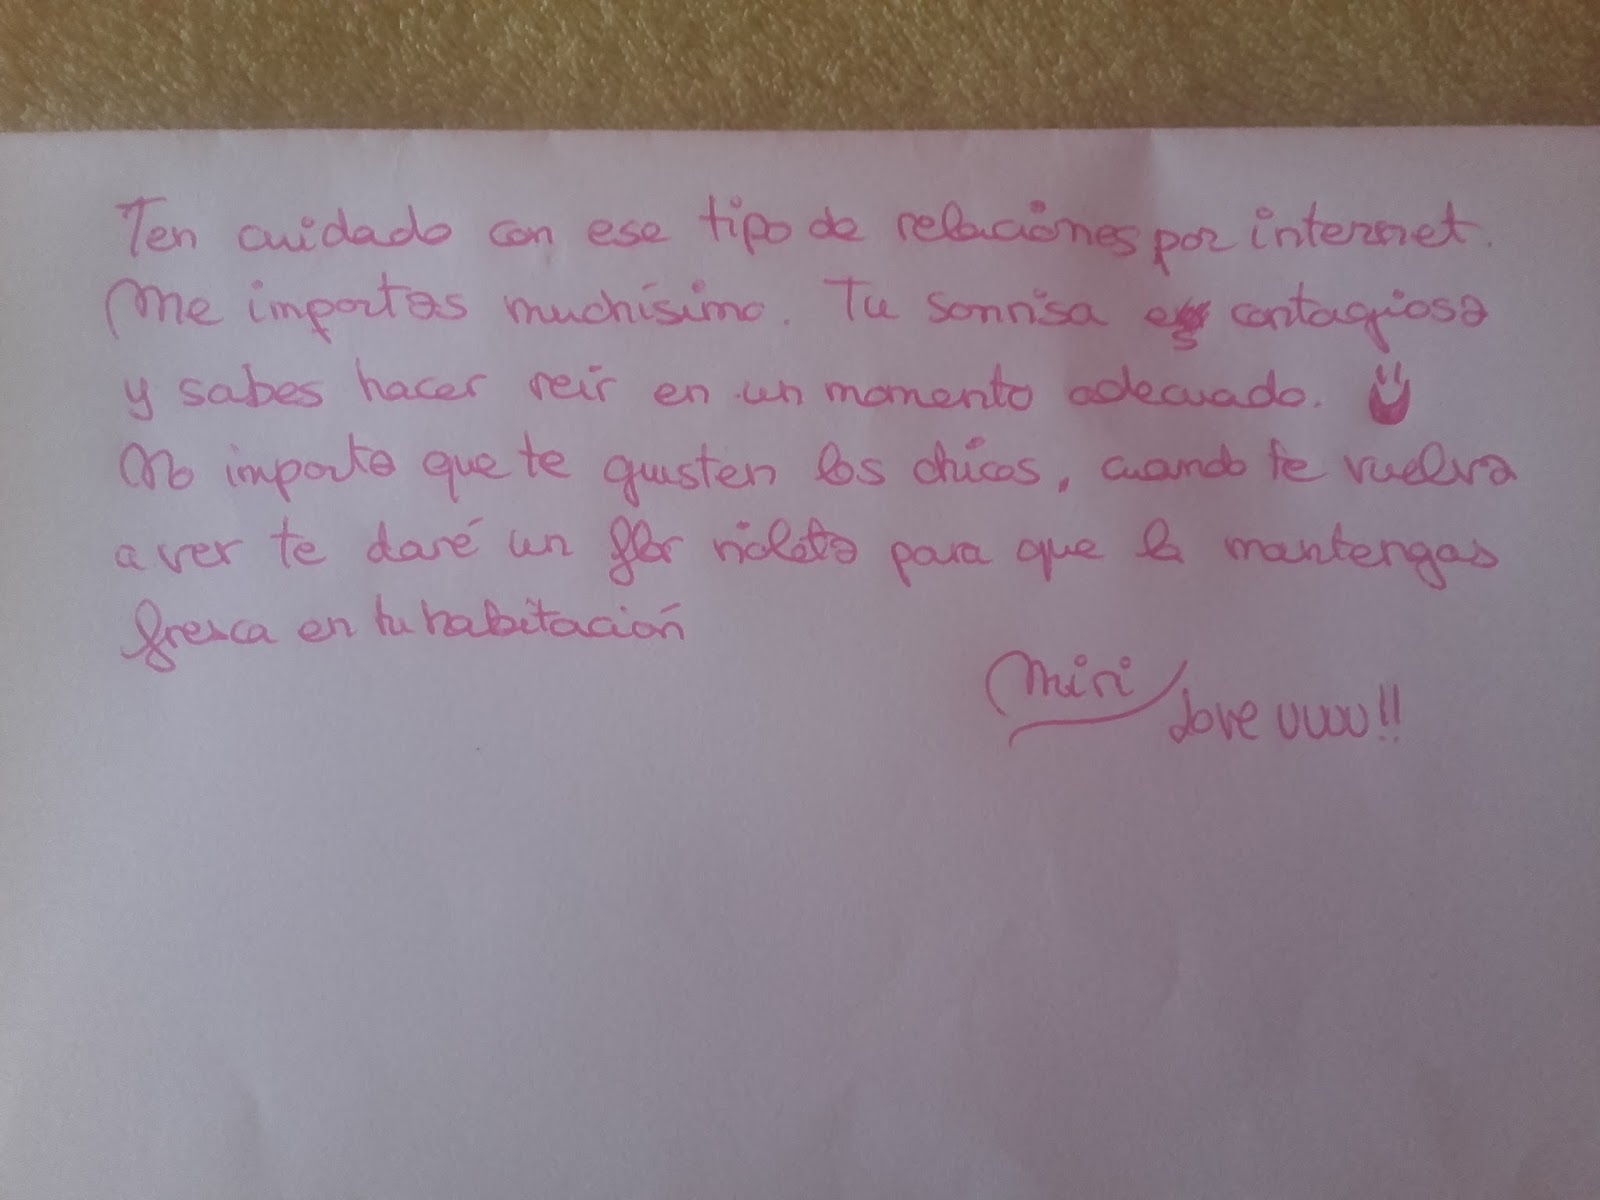 Ten cuidado con ese tipo de relaciones por internet.
Me importas muchísimo. Tu sonrisa es contagiosa
y sabes hacer reir en un momento adecuado.
No importa que te gusten los chicos, cuando te vuelva
a ver te daré un flor violeta para que la mantengas
fresca en tu habitación
Miri
Love uuuu!!